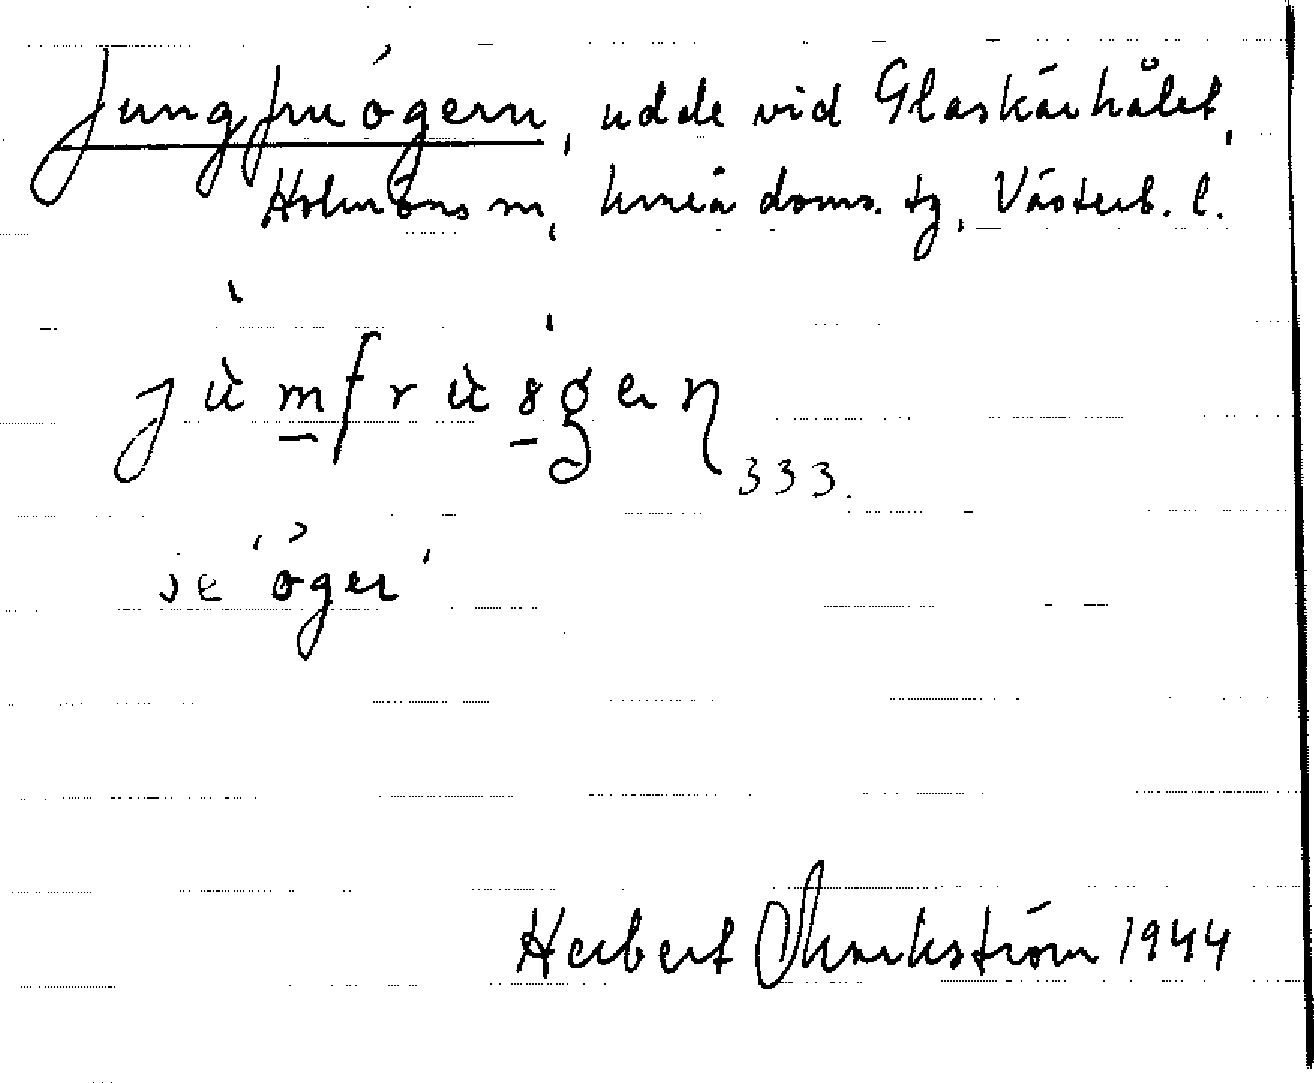 Jungfruögern, udde vid Glaskärhålet,
Holmöns sn, Umeå doms. tg, Västerb. l.
jùm̱frùs̱geṇ 333.
se 'öger'
Herbert Markström 1944